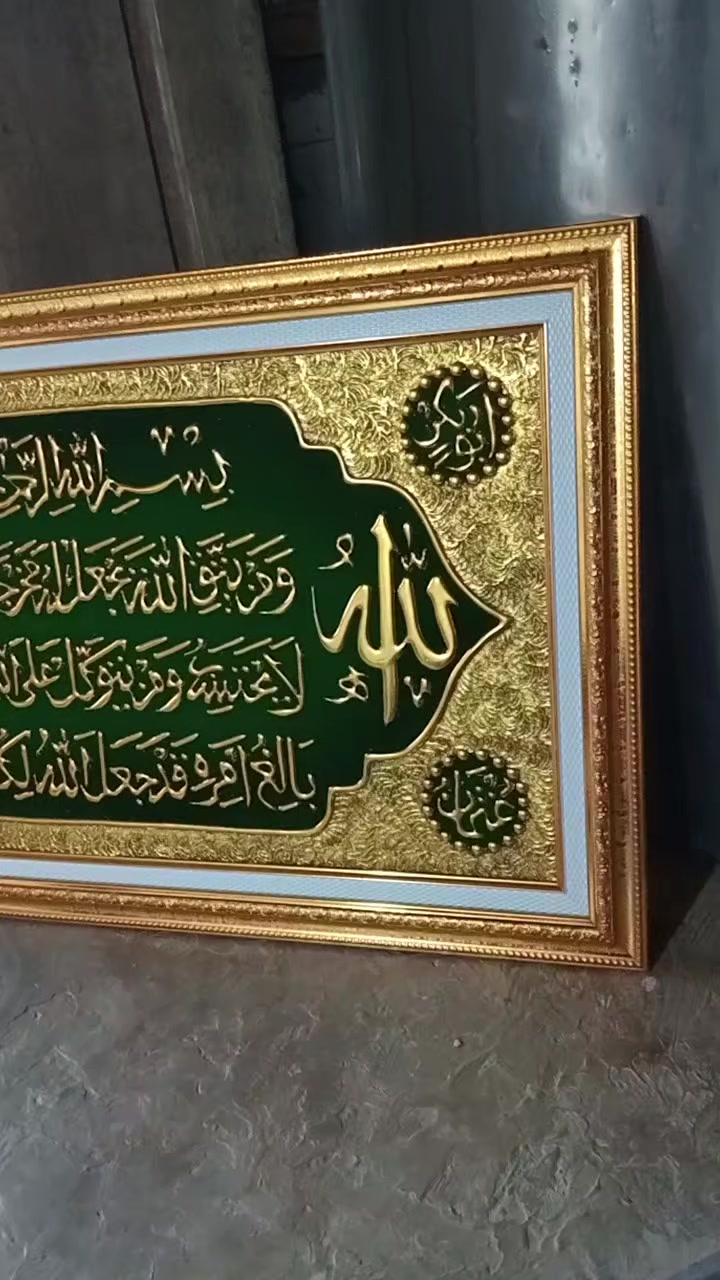 بِسْمِ اللهِ الرَّحْمٰ
وَمَنْ يَتَّقِ اللهَ يَجْعَلْ لَهُ مَخْرَجً
لَا يَحْتَسِبُ وَمَنْ يَتَوَكَّلْ عَلَى ال
بَالِغُ اَمْرِهِ قَدْ جَعَلَ اللهُ لِكُ
الله
ابو بكر
عثمان